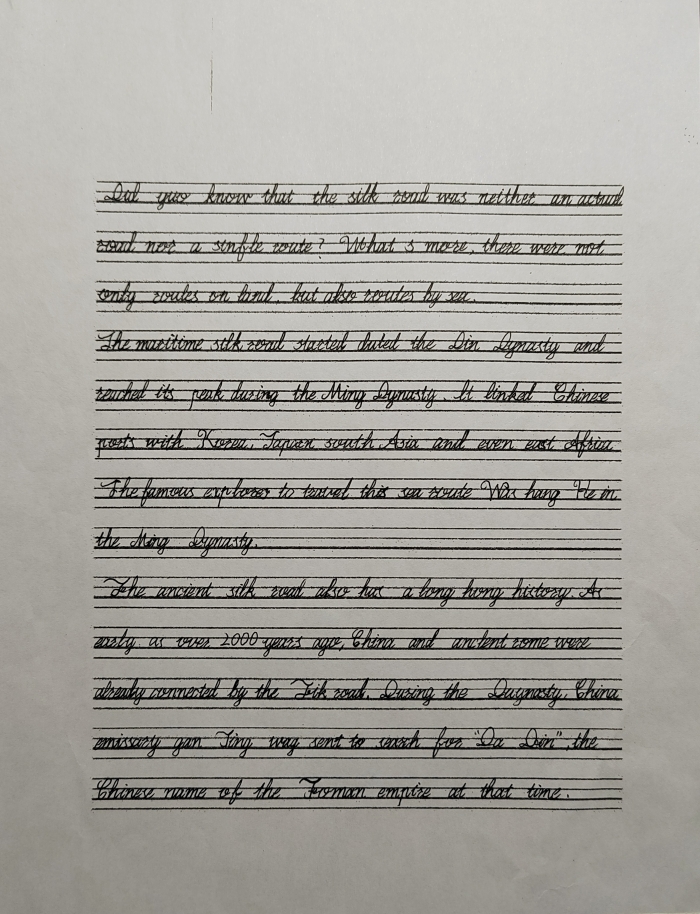 Did you know that the silk road was neither an actual
road nor a sinfle route? What s more, there were not
only routes on land, but also routes by sea.
The maritime silk road started duted the Din Dynasty and
reached its peak during the Ming Dynasty. It linked Chinese
ports with Korea, Tapan south Asia and even east Africa
The famous explorer to travel this sea route Was hang He in
the Ming Dynasty.
The ancient silk road also has a long hong history. As
early as over 2000 years ago, China and ancient rome were
already connected by the road. During the China
emissary gan Ting way sent to search for "Da Din", the
Chinese name of the Foman empire at that time.